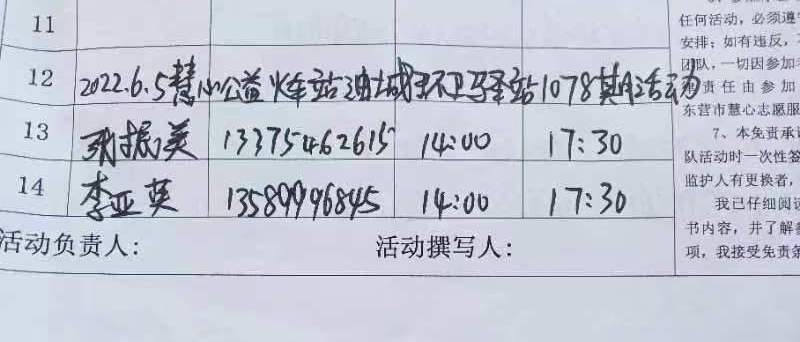 11
任何活动，必须遵
安排；如有违反，
团队，一切因参加
12 2022.6.5慧心公益火车站油城环卫驿站1078期活动
责任由参加
东营市慧心志愿服
13 张振英 13375462615 14:00 17:30
7、本免责承诺
队活动时一次性签
14 李亚英 13589996845 14:00 17:30
监护人有更换者，
我已仔细阅读
活动负责人： 活动撰写人：
书内容，并了解
项，我接受免责条